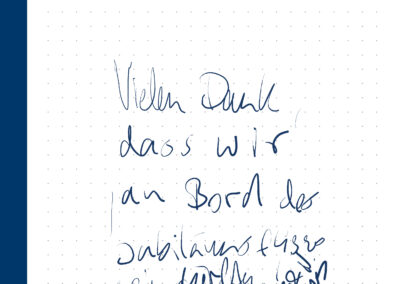 Vielen Dank,
dass wir
an Bord des
Jubiläumsfluges
sein durften